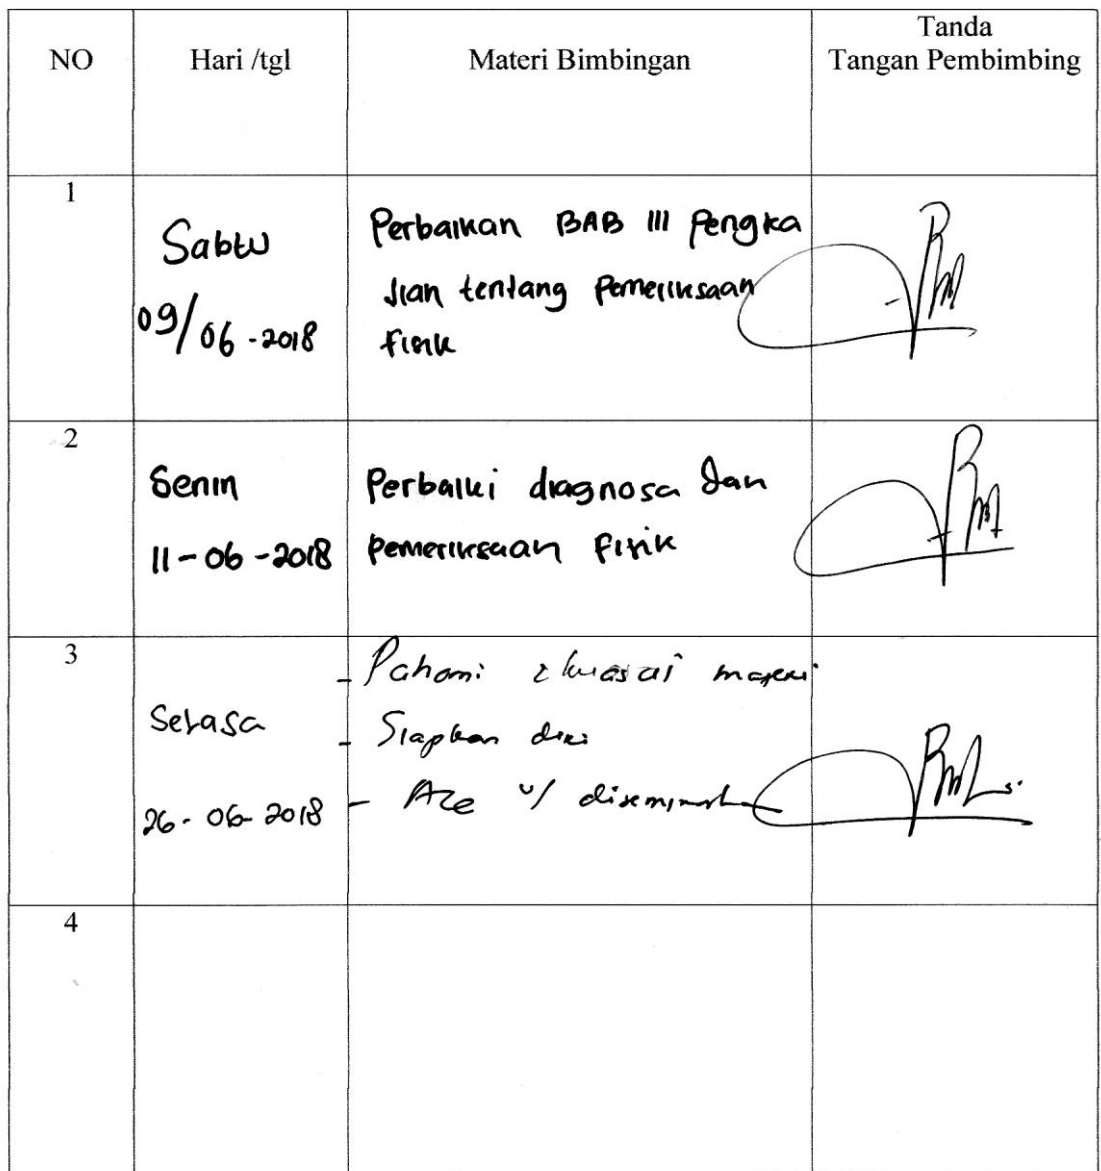 NO Hari /tgl Materi Bimbingan Tanda
Tangan Pembimbing
1
Sabtu
09/06-2018
Perbaikan BAB III Pengka
Jian tentang Pemeriksaan
fisik
2
Senin
11-06-2018
Perbaiki diagnosa dan
Pemeriksaan Fisik
3
Selasa
26-06-2018
- Pahami & kuasai materi
- Siapkan diri
- Acc u/ diseminarkan
4